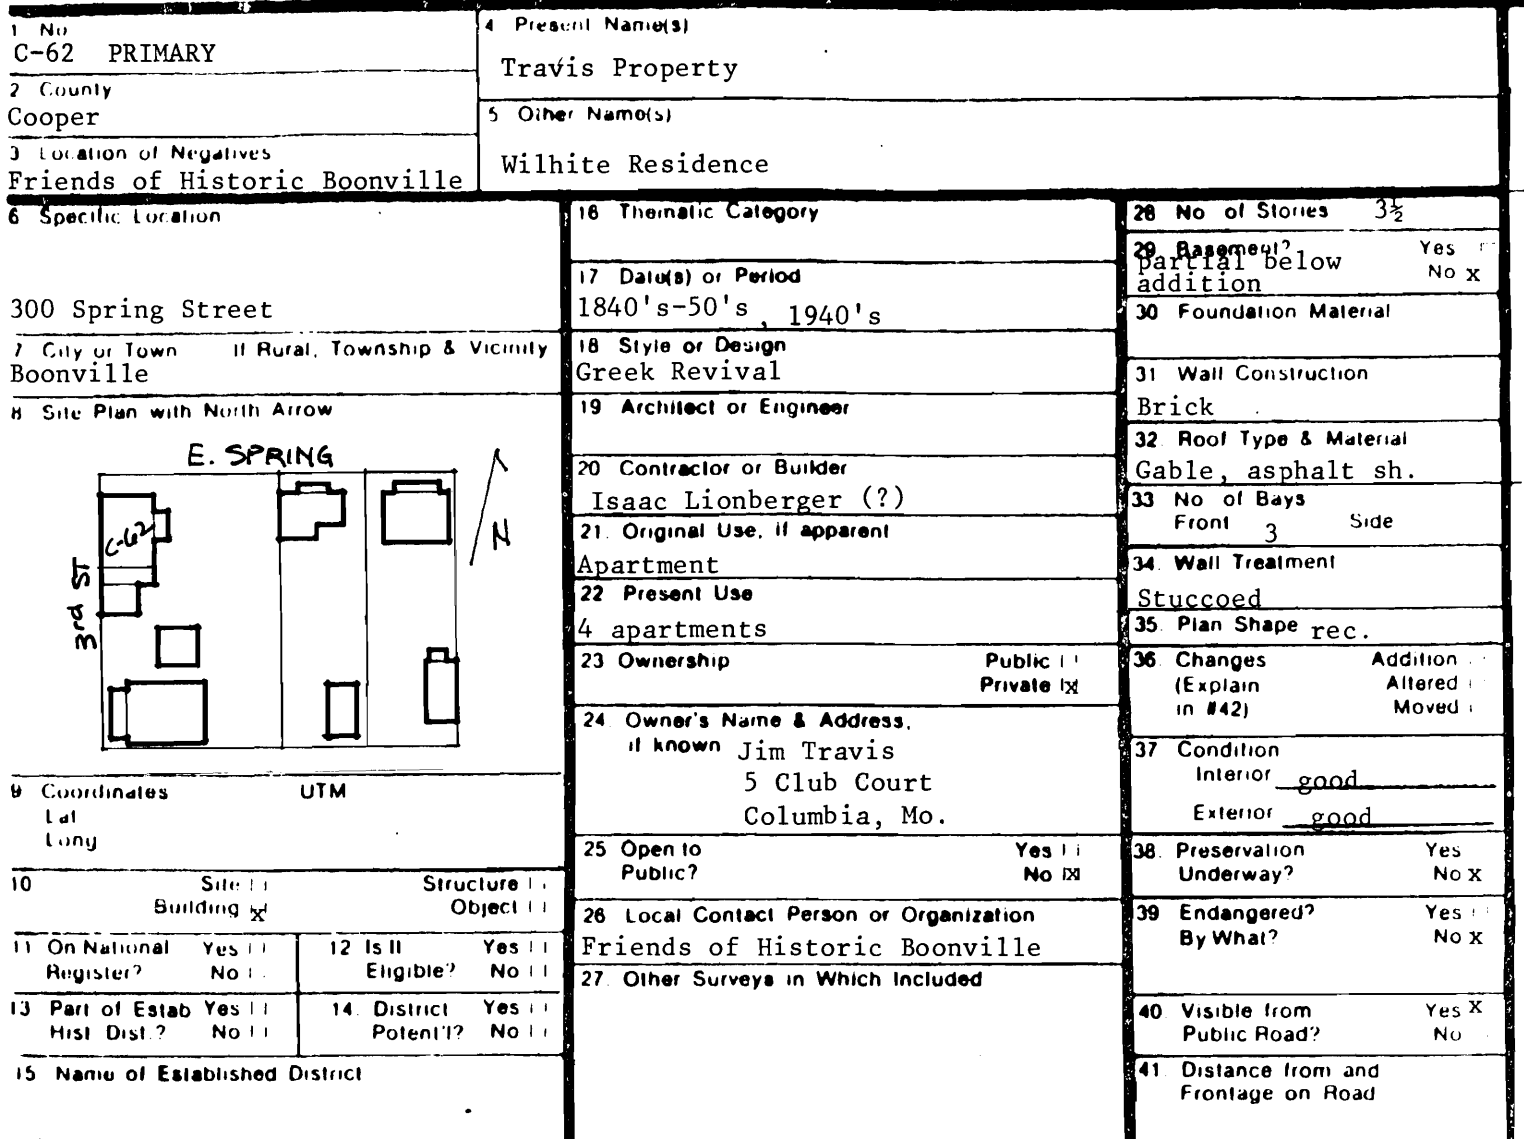 1 No
C-62 PRIMARY
2 County
Cooper
3 Location of Negatives
Friends of Historic Boonville
4 Present Name(s)
Travis Property
5 Other Name(s)
Wilhite Residence
6 Specific Location
300 Spring Street
7 City or Town If Rural, Township & Vicinity
Boonville
8 Site Plan with North Arrow
E. SPRING
N
C-62
3rd ST
9 Coordinates UTM
Lat
Long
10 Site
Structure
Building x
Object
11 On National Register? Yes
No
12 Is It Eligible? Yes
No
13 Part of Estab Hist Dist.? Yes
No
14. District Potent'l? Yes
No
15 Name of Established District
16 Thematic Category
17 Date(s) or Period
1840's-50's, 1940's
18 Style or Design
Greek Revival
19 Architect or Engineer
20 Contractor or Builder
Isaac Lionberger (?)
21. Original Use, if apparent
Apartment
22 Present Use
4 apartments
23 Ownership Public
Private x
24. Owner's Name & Address,
if known Jim Travis
5 Club Court
Columbia, Mo.
25 Open to Yes
Public? No x
26 Local Contact Person or Organization
Friends of Historic Boonville
27. Other Surveys in Which Included
28 No of Stories 3½
29. Basement? Yes
partial below No x
addition
30 Foundation Material
31 Wall Construction
Brick
32. Roof Type & Material
Gable, asphalt sh.
33 No of Bays
Front 3 Side
34. Wall Treatment
Stuccoed
35. Plan Shape rec.
36 Changes Addition
(Explain Altered
in #42) Moved
37 Condition
Interior good
Exterior good
38. Preservation Yes
Underway? No x
39 Endangered? Yes
By What? No x
40 Visible from Yes X
Public Road? No
41. Distance from and
Frontage on Road